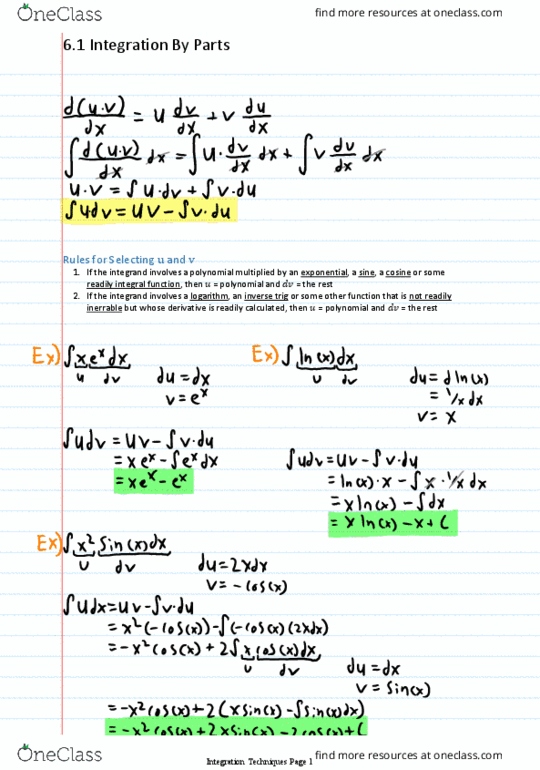 OneClass find more resources at oneclass.com
6.1 Integration By Parts
d(u·v)/dx = u dv/dx + v du/dx
∫ d(u·v)/dx dx = ∫ u· dv/dx dx + ∫ v du/dx dx
u·v = ∫u·dv + ∫v·du
∫udv = uv - ∫v·du
Rules for Selecting u and v
1. If the integrand involves a polynomial multiplied by an exponential, a sine, a cosine or some
readily integral function, then u = polynomial and dv = the rest
2. If the integrand involves a logarithm, an inverse trig or some other function that is not readily
inerrable but whose derivative is readily calculated, then u = polynomial and dv = the rest
Ex) ∫xe^x dx
u dv
du = dx
v = e^x
∫udv = uv - ∫v·du
= xe^x - ∫e^x dx
= xe^x - e^x
Ex) ∫ ln(x)dx
u dv
du = d ln(x)
= 1/x dx
v = x
∫udv = uv - ∫v·du
= ln(x)·x - ∫x·1/x dx
= x ln(x) - ∫dx
= x ln(x) - x + C
Ex) ∫x² sin(x)dx
u dv
du = 2xdx
v = -cos(x)
∫udx = uv - ∫v·du
= x²(-cos(x)) - ∫(-cos(x)(2xdx)
= -x²cos(x) + 2∫x cos(x)dx
u dv
du = dx
v = sin(x)
= -x²cos(x) + 2(xsin(x) - ∫sin(x)dx)
= -x²cos(x) + 2xsin(x) - 2cos(x) + C
OneClass find more resources at oneclass.com
Integration Techniques Page 1